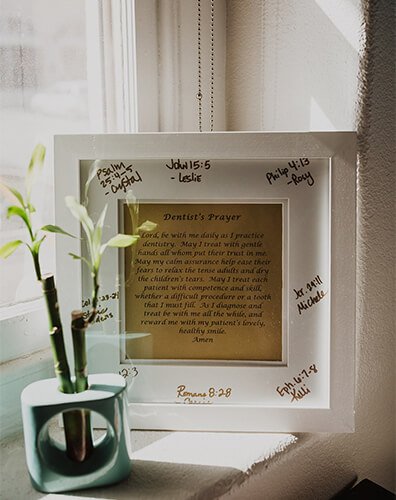 Psalm
25:4-5
- Crystal
John 15:5
- Leslie
Philip 4:13
- Rory
Dentist's Prayer
Lord, be with me daily as I practice
dentistry. May I treat with gentle
hands all whom put their trust in me.
May my calm assurance help ease their
fears to relax the tense adults and dry
the children's tears. May I treat each
patient with competence and skill,
whether a difficult procedure or a tooth
that I must fill. As I diagnose and
treat be with me all the while, and
reward me with my patient's lovely,
healthy smile.
Amen
Jer. 29:11
Michele
Eph 6:7-8
Kelli
Romans 8:28